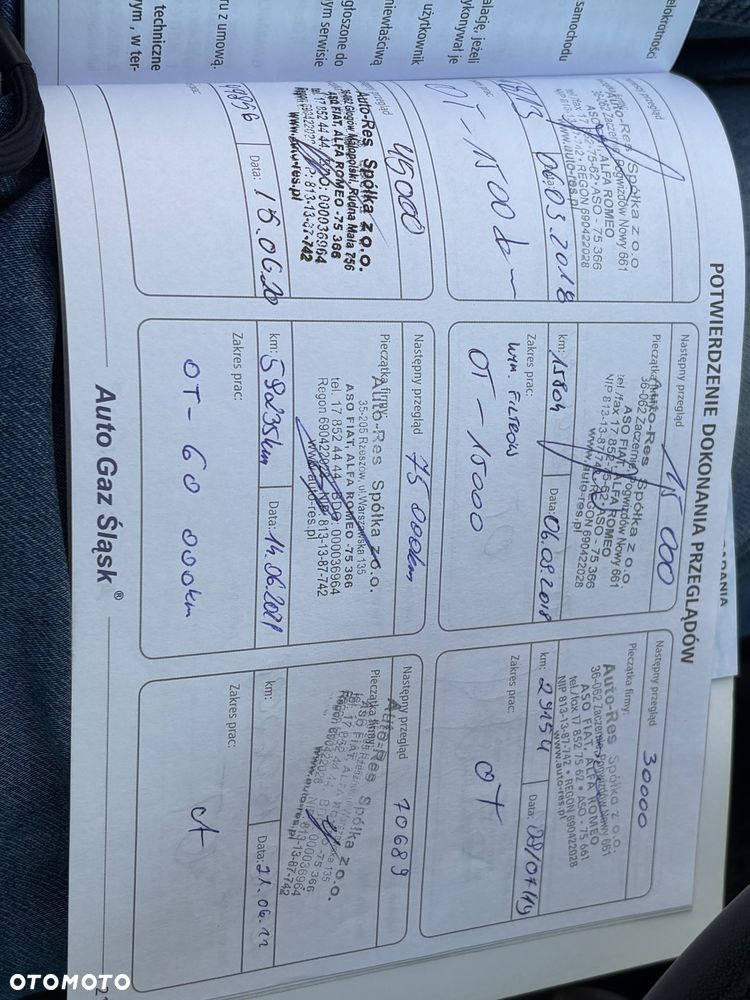 elokrotności
samochodu
alację, jeżeli
ykonywał je
użytkownik
niewłaściwą
głoszone do
ym serwisie
ru z umową.
techniczne
rym , w ter-
POTWIERDZENIE DOKONANIA PRZEGLĄDÓW
przegląd
Auto-Res Spółka z o.o.
36-062 Zaczernie, Pogwizdów Nowy 661
ASO FIAT, ALFA ROMEO
www.auto-res.pl
Data: 06.03.2018
OT-1500 km
Następny przegląd 15 000
Pieczątka firmy:
Auto-Res Spółka z o.o.
36-062 Zaczernie, Pogwizdów Nowy 661
ASO FIAT, ALFA ROMEO
tel./fax. 17 852-75-62 • ASO - 75 366
NIP 813-13-87-742 • REGON 690422028
www.auto-res.pl
km: 15804 Data: 06.09.2018
Zakres prac:
wym. FILTRÓW
OT-15000
Następny przegląd 30000
Pieczątka firmy:
Auto-Res Spółka z o.o.
36-062 Zaczernie, Pogwizdów Nowy 661
ASO FIAT, ALFA ROMEO
tel./fax 17 852 75 62 • ASO - 75 661
NIP 813-13-87-742 • REGON 690422028
www.auto-res.pl
km: 29154 Data: 09/07/19
Zakres prac:
OT
przegląd 45000
Auto-Res Spółka z o.o.
36-062 Głogów Małopolski, Rudna Mała 756
ASO FIAT, ALFA ROMEO -75 366
tel. 17 852 44 44, BDO 000036964
Regon 690422028 NIP: 813-13-87-742
www.auto-res.pl
Data: 15.06.20
Następny przegląd 75 000km
Pieczątka firmy:
Auto-Res Spółka z o.o.
35-205 Rzeszów, ul. Warszawska 135
ASO FIAT, ALFA ROMEO -75 366
tel. 17 852 44 44, BDO 000036964
Regon 690422028 NIP 813-13-87-742
www.auto-res.pl
km: 59235km Data: 14.06.2021
Zakres prac:
OT-60 000km
Następny przegląd 70689
Pieczątka firmy:
Auto-Res Spółka z o.o.
www.auto-res.pl
km: Data: 21.06.22
Zakres prac:
Auto Gaz Śląsk®
OTOMOTO